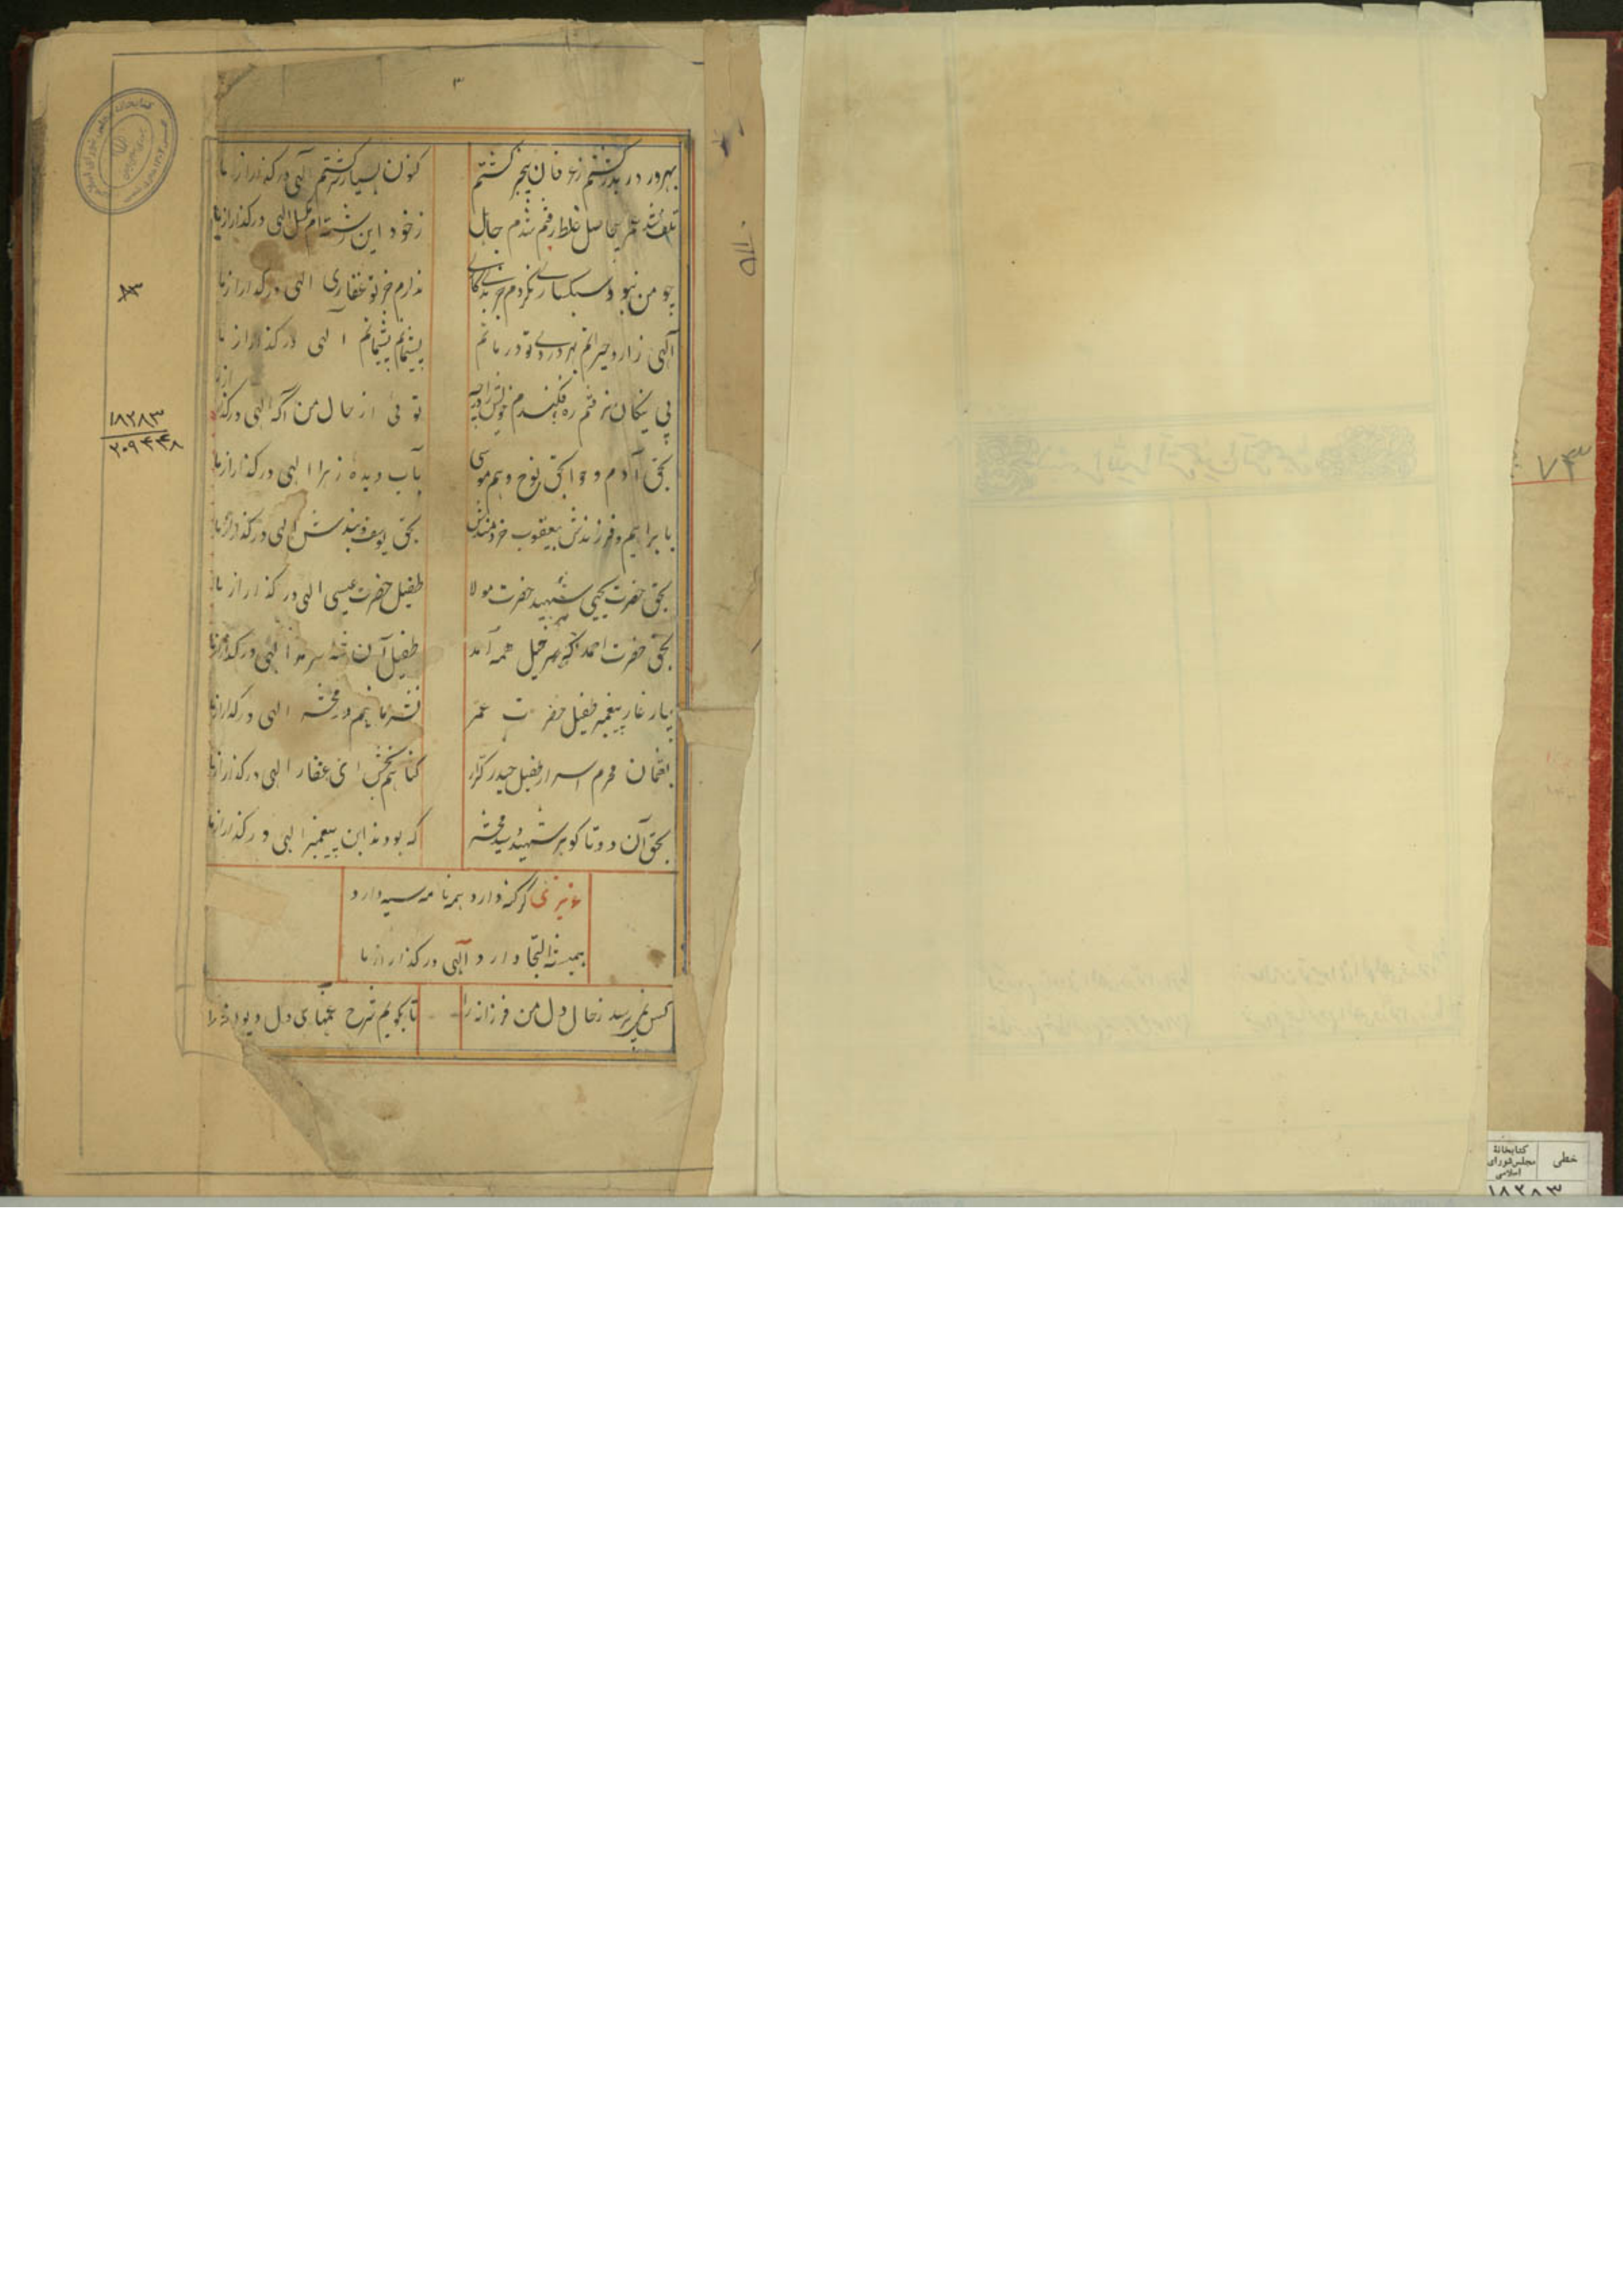 ۳
بهر در در بدر گشتم ز عرفان بیخبر گشتم کنون بسیار تر گشتم الهی درگذر از ما
تلف شد عمر بیحاصل غلط رفتم شدم جاهل ز خود این رشته ام بگسل الهی درگذر از ما
چو من نبود سبکساری نکردم جز ندارم جز تو غفاری الهی درگذر از ما
آلهی زار و حیرانم بهر دردی تو درمانم پشیمانم پشیمانم الهی درگذر از ما
پی نیکان نرفتم ره فکندم خویش را در چه توئی از حال من آگه الهی درگذر از ما
بحق آدم و حوا بحق نوح و هم موسی بآب دیده زهرا الهی درگذر از ما
بابراهیم و فرزندش بیعقوب خردمندش بحق یوسف و بندش الهی درگذر از ما
بحق حضرت یحیی شهید حضرت مولا طفیل حضرت عیسی الهی درگذر از ما
بحق حضرت احمد که سرخیل همه آمد طفیل آن شه سرمد الهی درگذر از ما
بیار غار پیغمبر طفیل حضرت عمر نترسانیم در محشر الهی درگذر از ما
بعثمان محرم اسرار طفیل حیدر کرار گناهم بخش ای غفار الهی درگذر از ما
بحق آن دو تا گوهر شهید که بودند ابن پیغمبر الهی درگذر از ما
عزیزی گر گنه دارد همه نامه سیه دارد
همیشه التجا دارد آلهی درگذر از ما
کس نمیپرسد ز حال دل من فرزانه را تا بگویم شرح غمهای دل دیوانه را
۱۸۲۸۳
۲۰۹۴۴۸
۷۳
خطی
کتابخانهٔ
مجلس شورای
اسلامی
۱۸۲۸۳